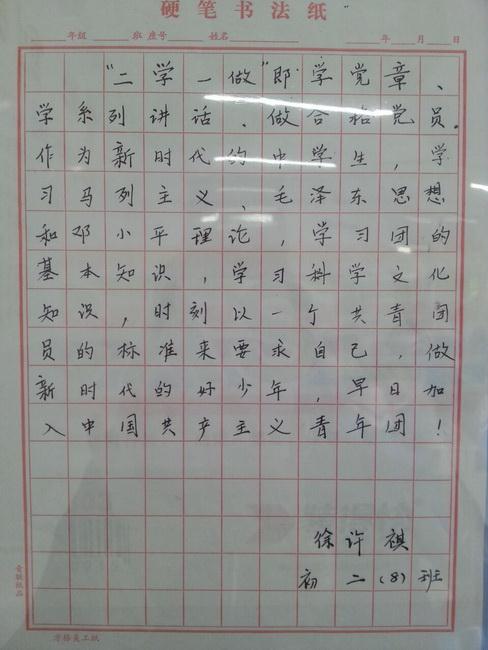 硬笔书法纸
年级 班 座号 姓名 年 月 日
“二学一做”即学党章、
学系列讲话、做合格党员。
作为新时代的中学生，学
习马列主义、毛泽东思想
和邓小平理论，学习团的
基本知识，学习科学文化
知识，时刻以一个共青团
员的标准来要求自己，做
新时代的好少年，早日加
入中国共产主义青年团！
徐许祺
初二（8）班
方格美工纸